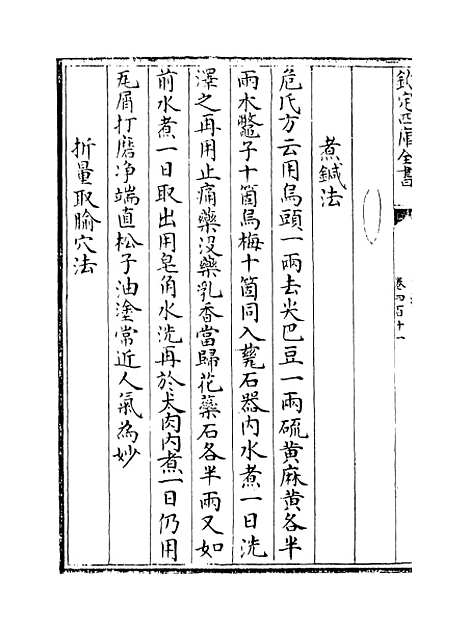 欽定四庫全書
卷四百十一
煮鍼法
危氏方云用烏頭一兩去尖巴豆一兩硫黄麻黄各半
兩木鼈子十箇烏梅十箇同入甆石器内水煮一日洗
澤之再用止痛藥没藥乳香當歸花蘂石各半兩又如
前水煮一日取出用皂角水洗再於犬肉内煮一日仍用
瓦屑打磨净端直松子油塗常近人氣為妙
折量取腧穴法